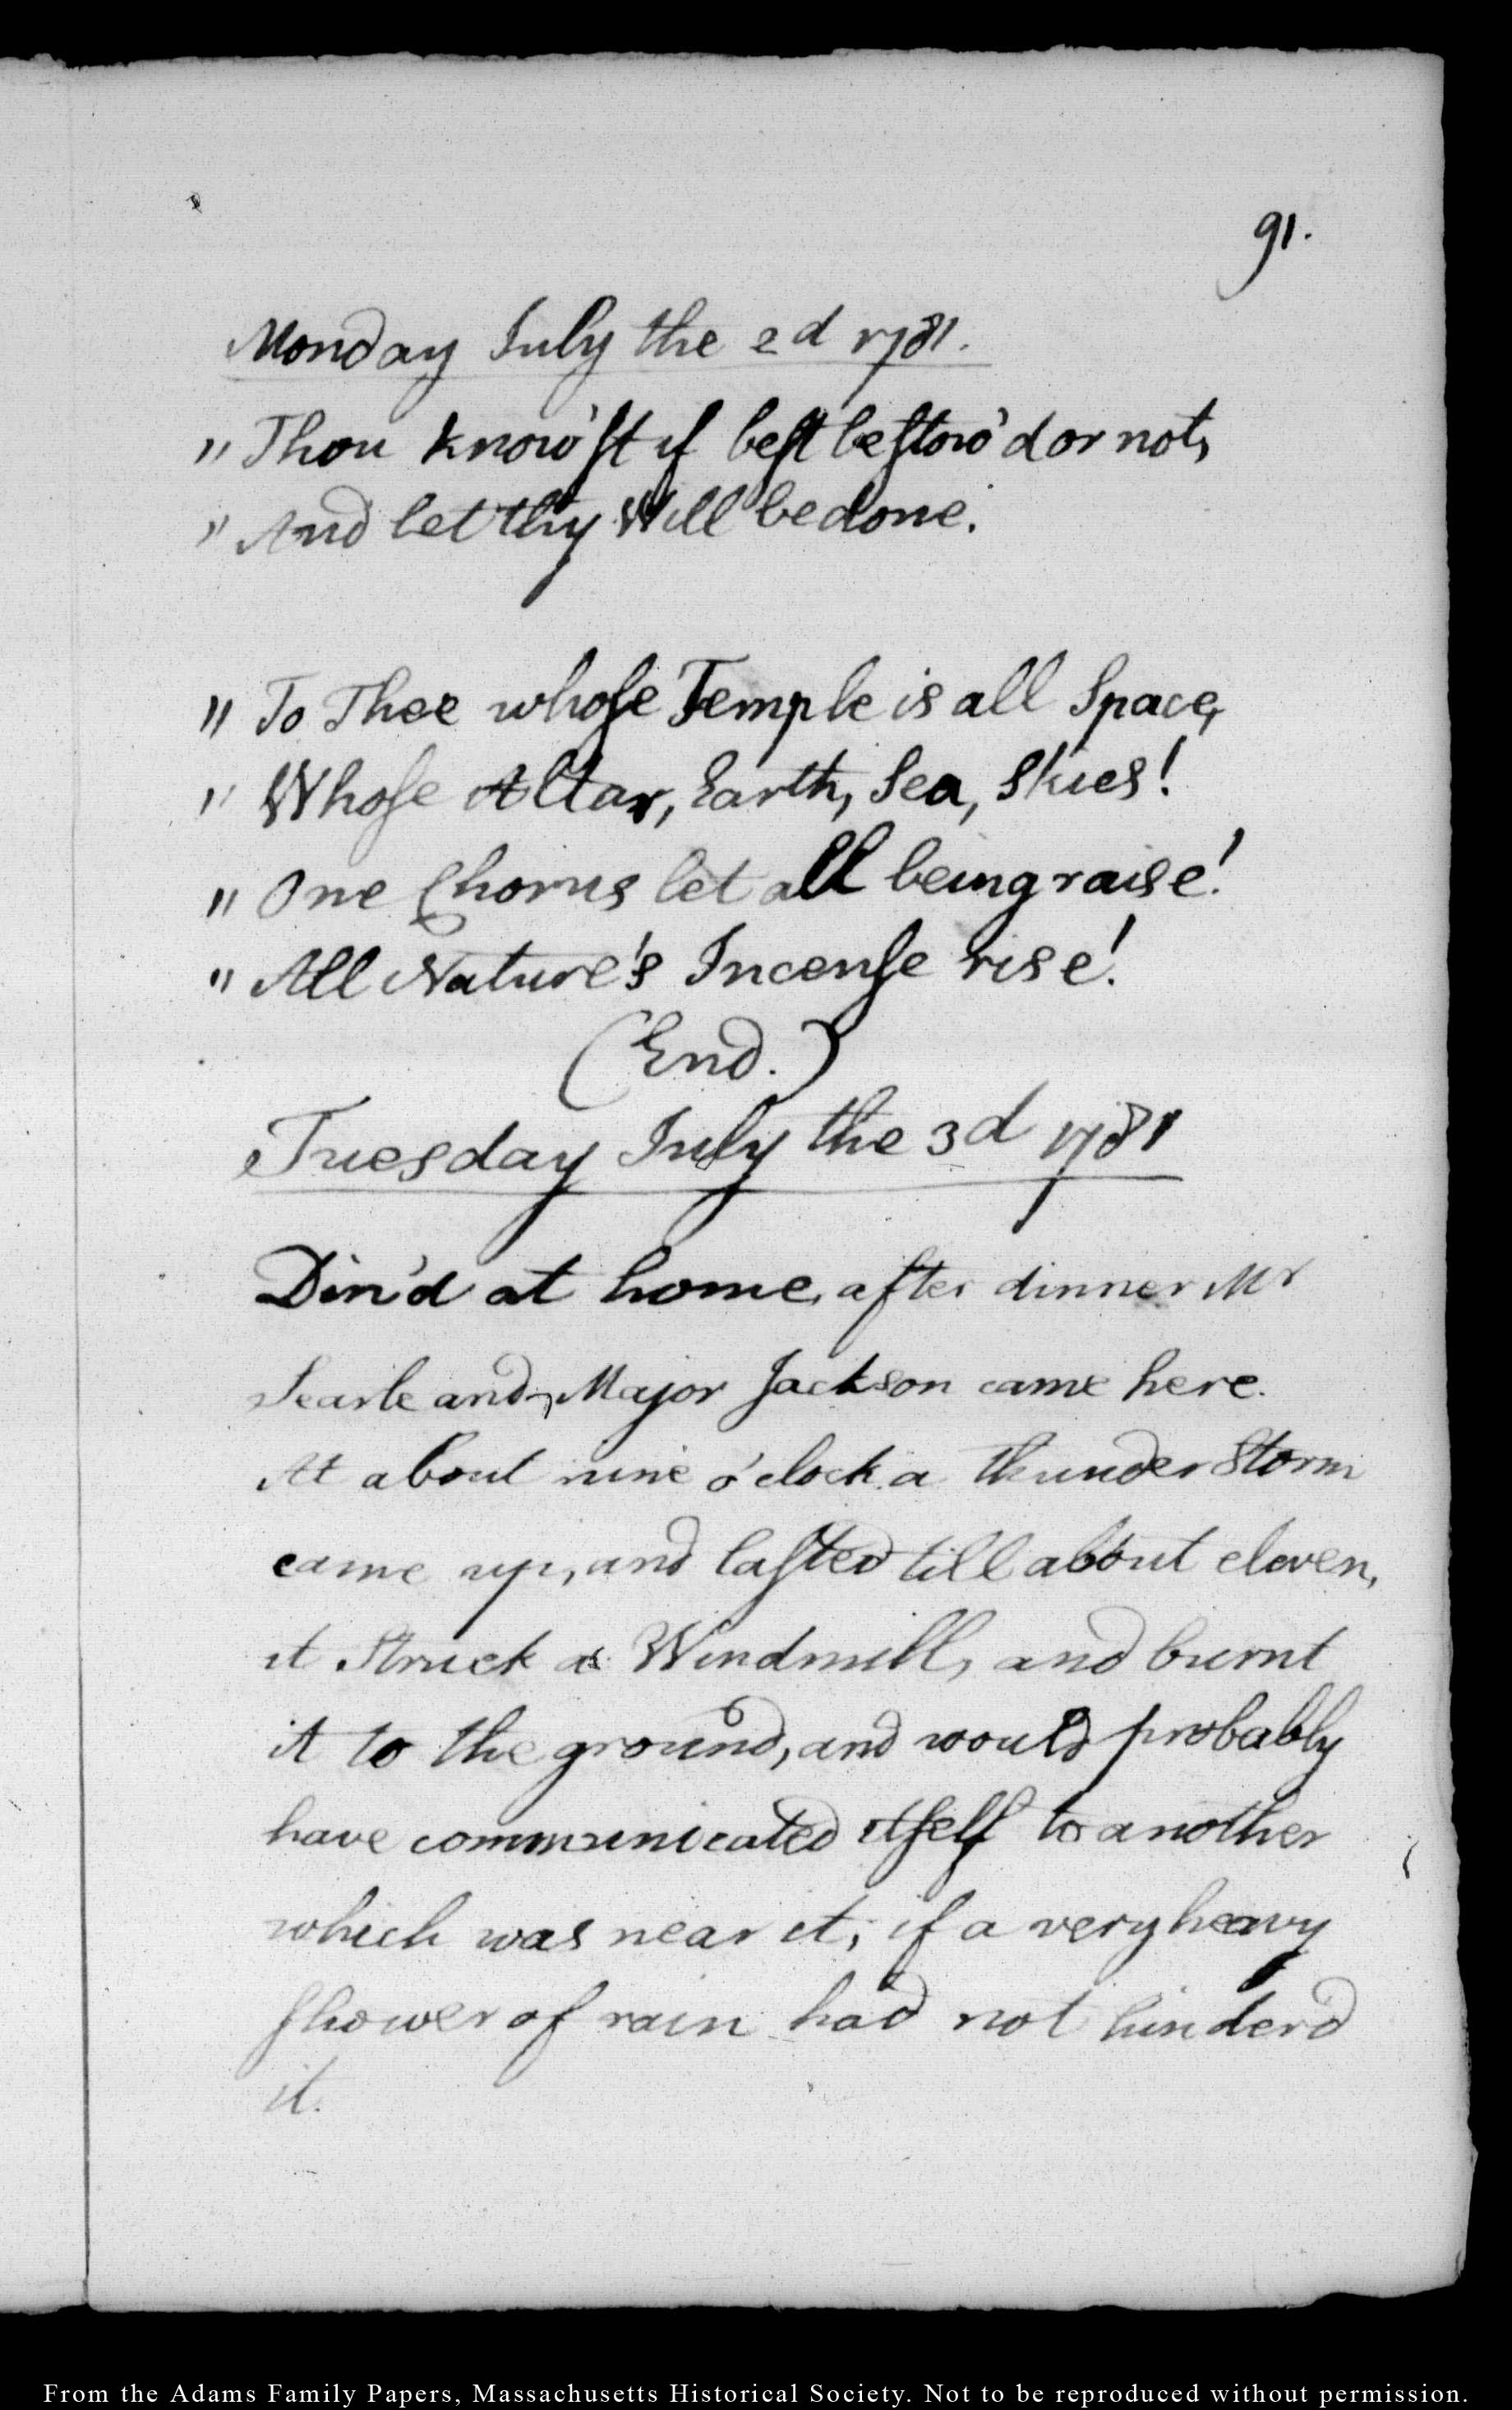 91.
Monday July the 2d 1781.
" Thou know'ſt if beſt beſtow'd or not,
" And let thy Will be done.
" To Thee whoſe Temple is all Space,
" Whoſe Altar, Earth, Sea, Skies!
" One Chorus let all being raise!
" All Nature's Incenſe rise!
(End.)
Tuesday July the 3d 1781
Din'd at home, after dinner Mr
Searle and Major Jackson came here.
At about nine o'clock a thunder Storm
came up, and laſted till about eleven,
it Struck a Windmill, and burnt
it to the ground, and would probably
have communicated itſelf to another
which was near it, if a very heavy
ſhower of rain had not hinder'd
it.
From the Adams Family Papers, Massachusetts Historical Society. Not to be reproduced without permission.